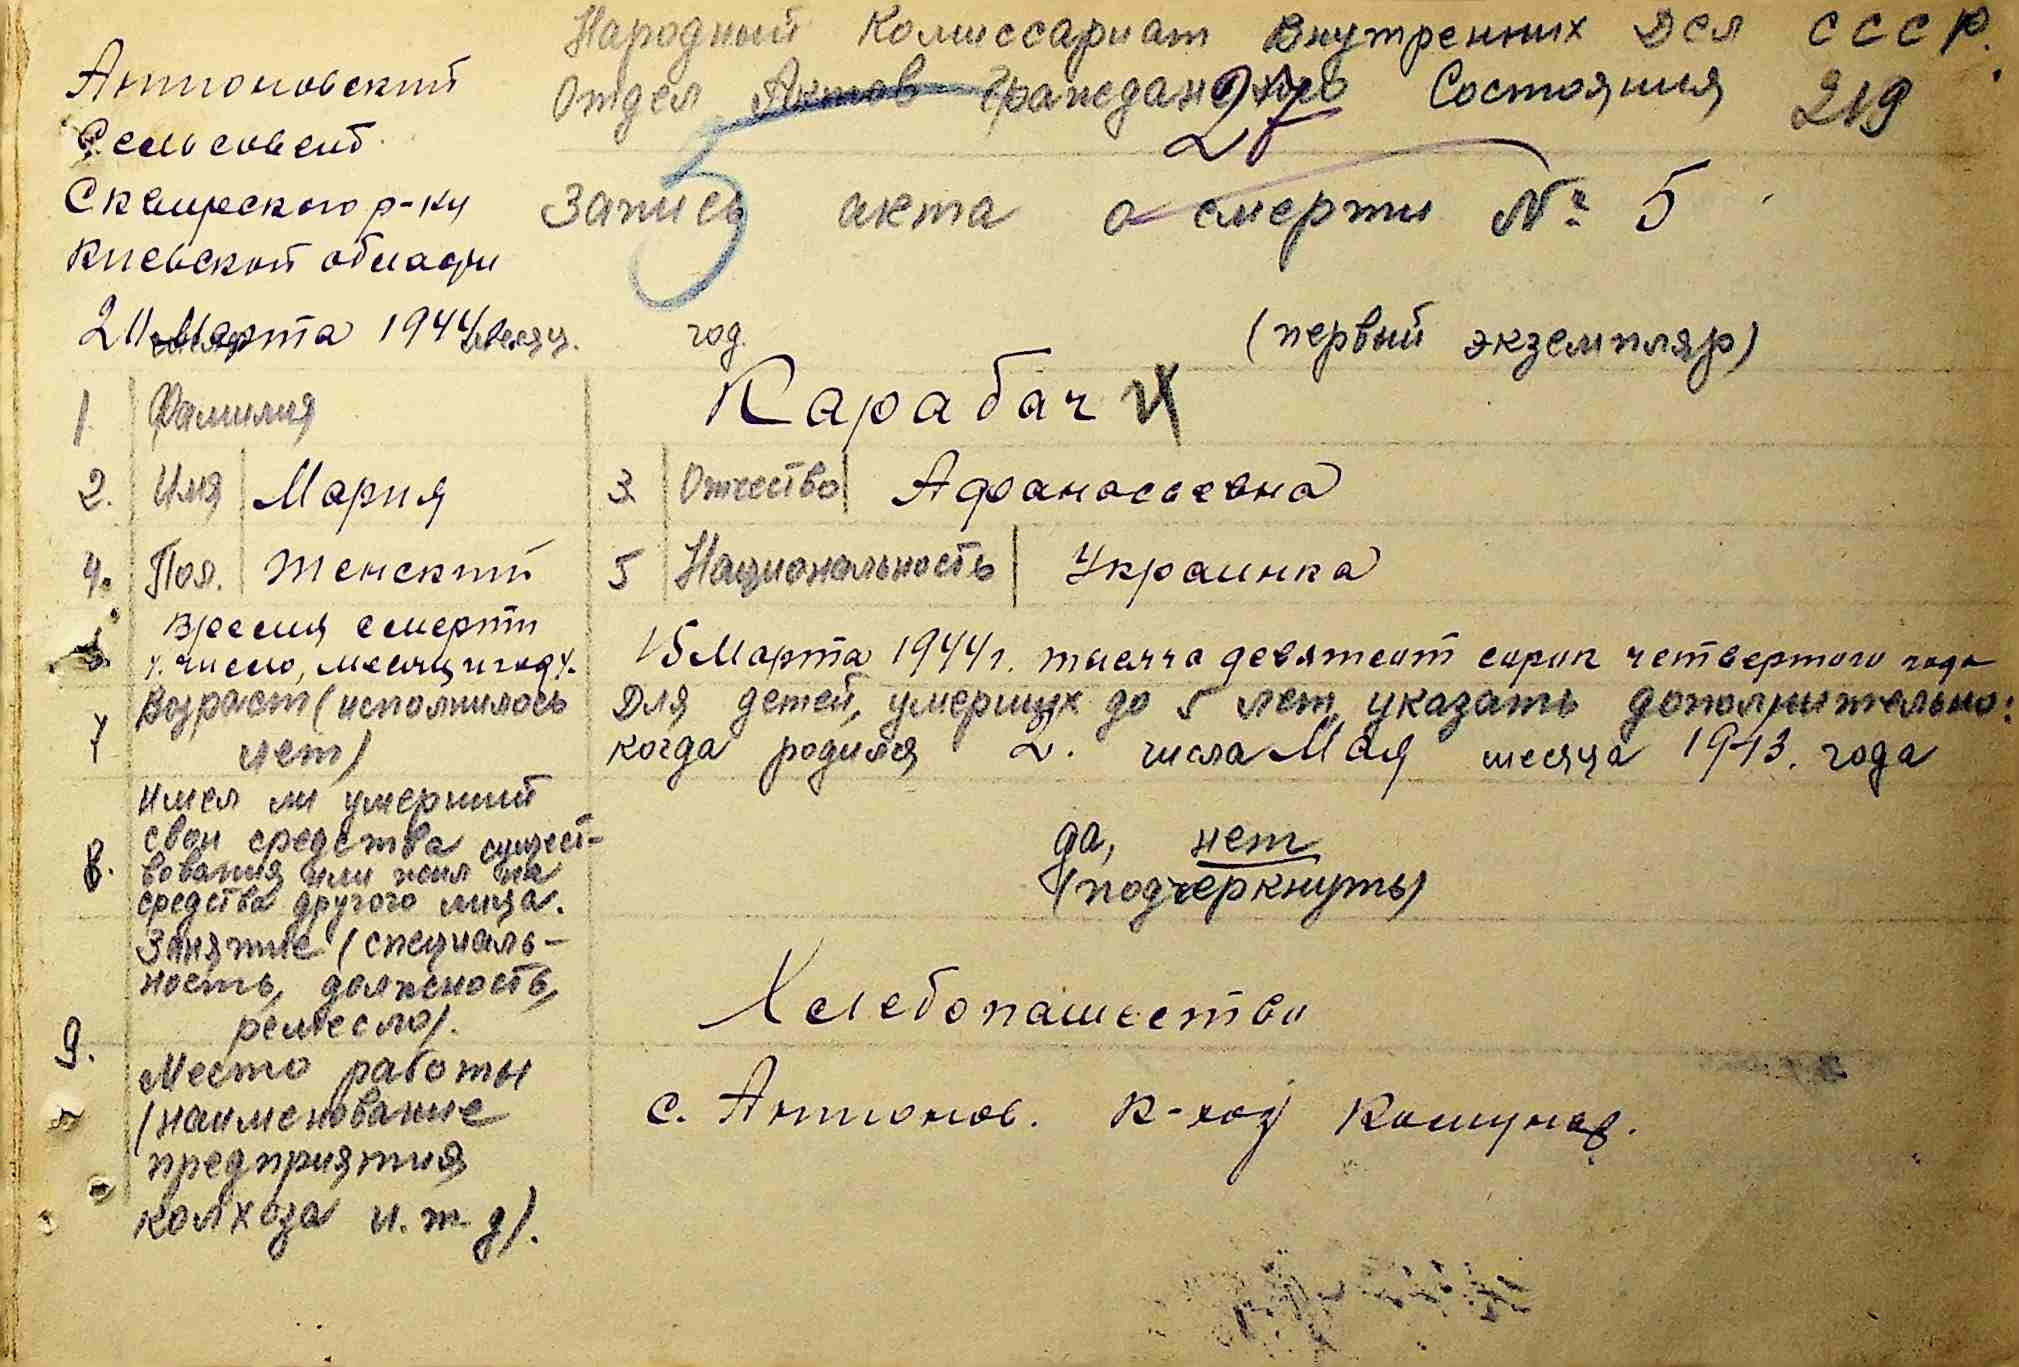 Народный Комиссариат Внутренних Дел СССР.
Отдел Актов Гражданских Состояния 219
27
Антоновский
Сельсовет
Сквирского р-ну
Киевской области
Запись акта о смерти № 5
5
Марта 1944 месяц. год. (первый экземпляр)
1. Фамилия Карабач
2. Имя Мария 3. Отчество Афанасьевна
4. Пол. Женский 5 Национальность Украинка
Время смерти
число, месяц и год 15 Марта 1944 г. тысяча девятсот сорок четвертого года
7 Возраст (исполнилось лет)
Для детей, умерших до 5 лет, указать дополнительно:
когда родился 2. числа Мая месяца 1943. года
8. Имел ли умерший
свои средства сущест-
вования или жил на
средства другого лица.
да, нет
(подчеркнуть)
9. Занятие (специаль-
ность, должность,
ремесло).
Хлебопашество
Место работы
(наименование
предприятия
колхоза и. т д).
с. Антонов. к-хоз Комунар.